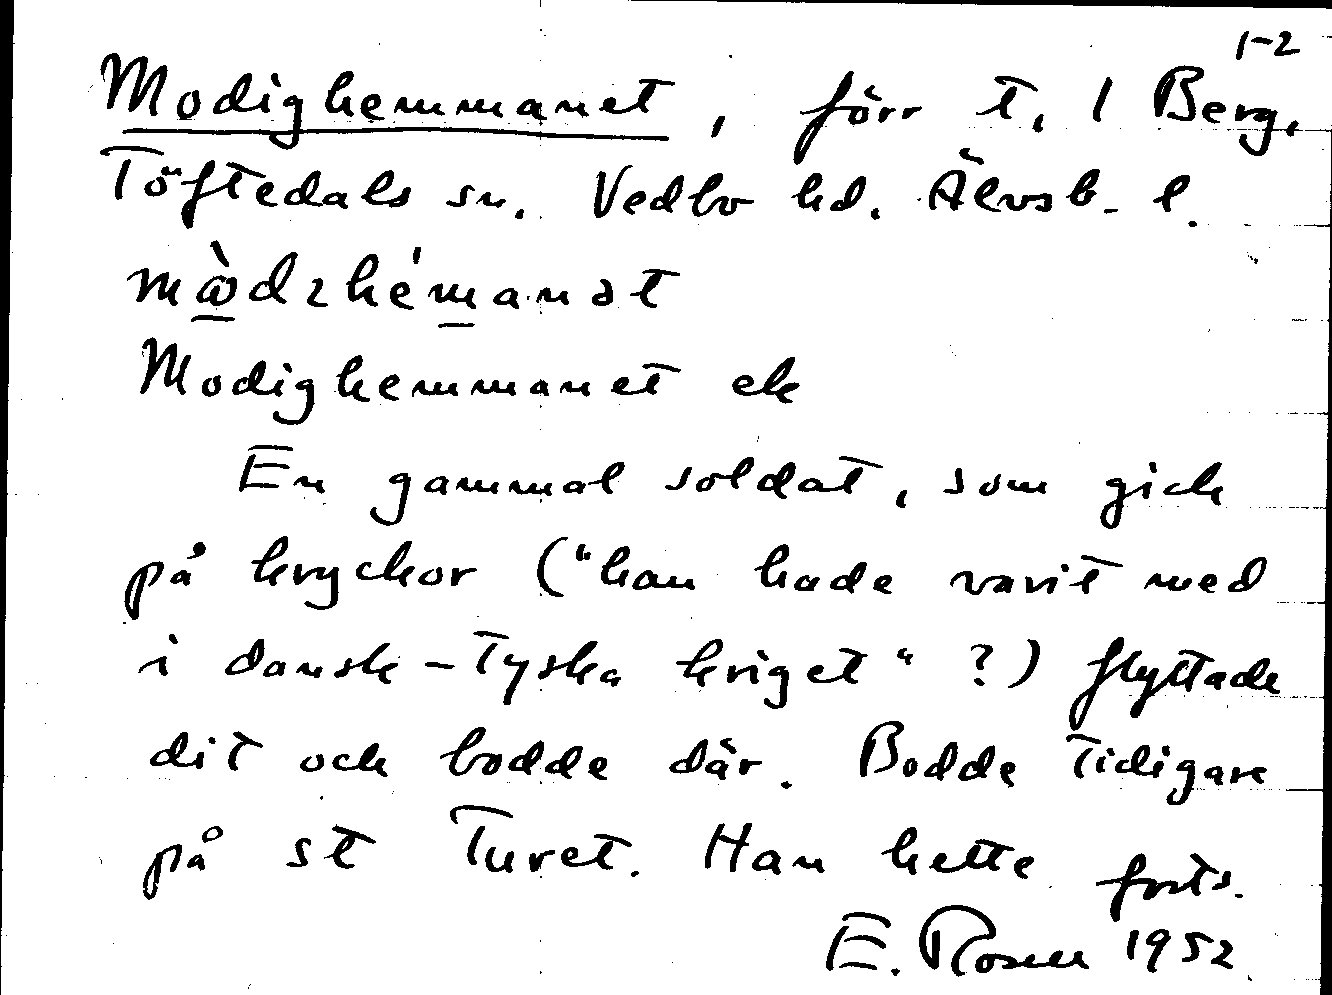 1-2
Modighemmanet, förr t. 1 Berg,
Töftedals sn. Vedbo hd. Älvsb. l.
Modighemmanet ek
En gammal soldat, som gick
på kryckor ("han hade varit med
i dansk-tyska kriget" ?) flyttade
dit och bodde där. Bodde tidigare
på st Turet. Han hette forts.
E. Rosen 1952